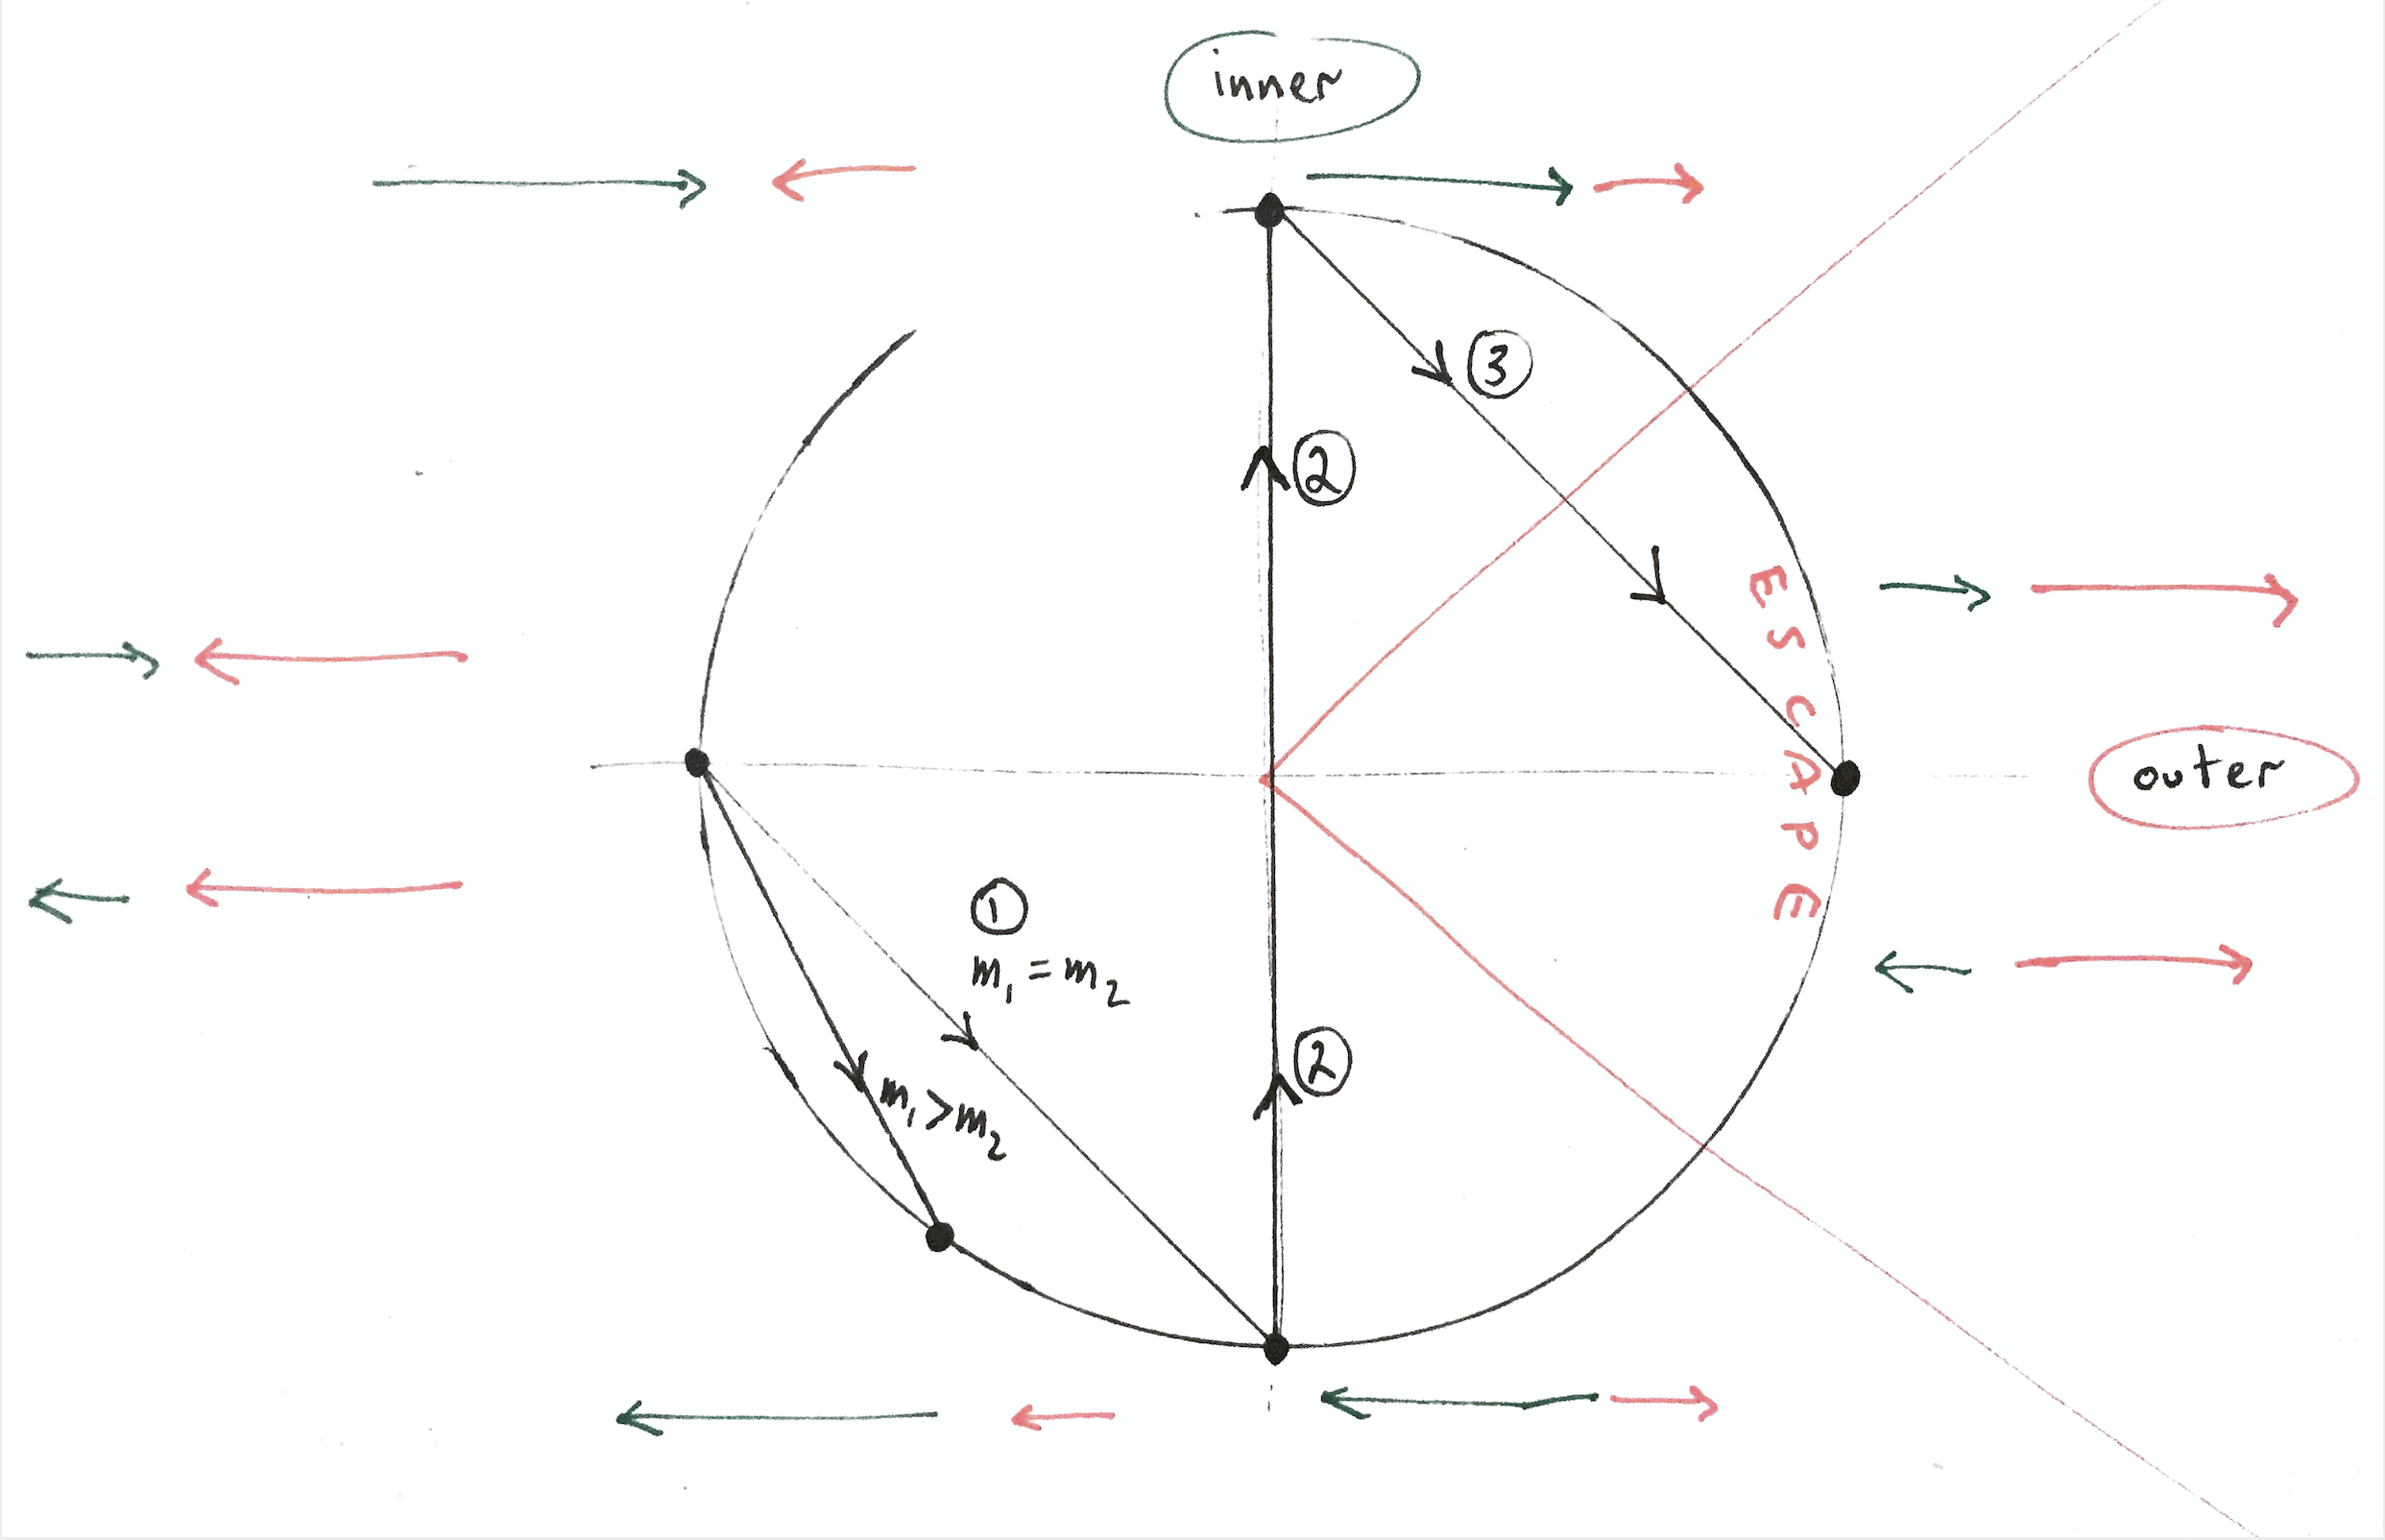 inner
3
2
ESCAPE
outer
1
m₁ = m₂
2
m₁ > m₂